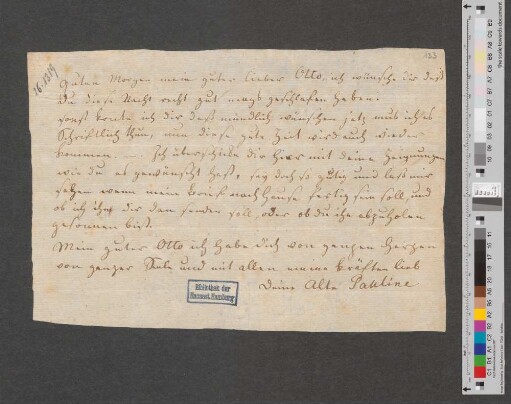 16. 1819
133
Guten Morgen mein guter lieber Otto, ich wünsche dir daß
du diese Nacht recht gut mags geschlafen haben.
sonst konte ich dir daß mündlich wünschen jetz mus ich es
Schriftlich thun, nun diese gute Zeit wird auch wieder
kommen. — Ich überschicke dir hier mit deine Zeignungen
wie du es gewünscht hast, sey doch so gütig und laß mir
sagen wenn mein brief nach Hause fertig sein soll, und
ob ich ihn dir dan senden soll, oder ob du ihn abzuholen
gesonnen bist.
Mein guter Otto ich habe dich von ganzen Herzen
von ganzer Sele und mit allen meine kräften lieb
Deine Alte Pauline
Bibliothek der
Hansest. Hamburg